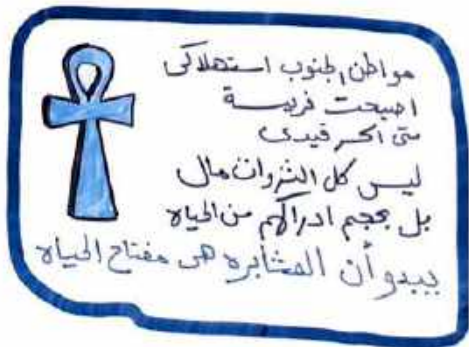 مواطن الجنوب استهلاكى
اصبحت فريسة
متى اكسر قيدى
ليس كل الثروات مال
بل بحجم ادراكهم من الحياه
يبدو أن المثابره هى مفتاح الحياه